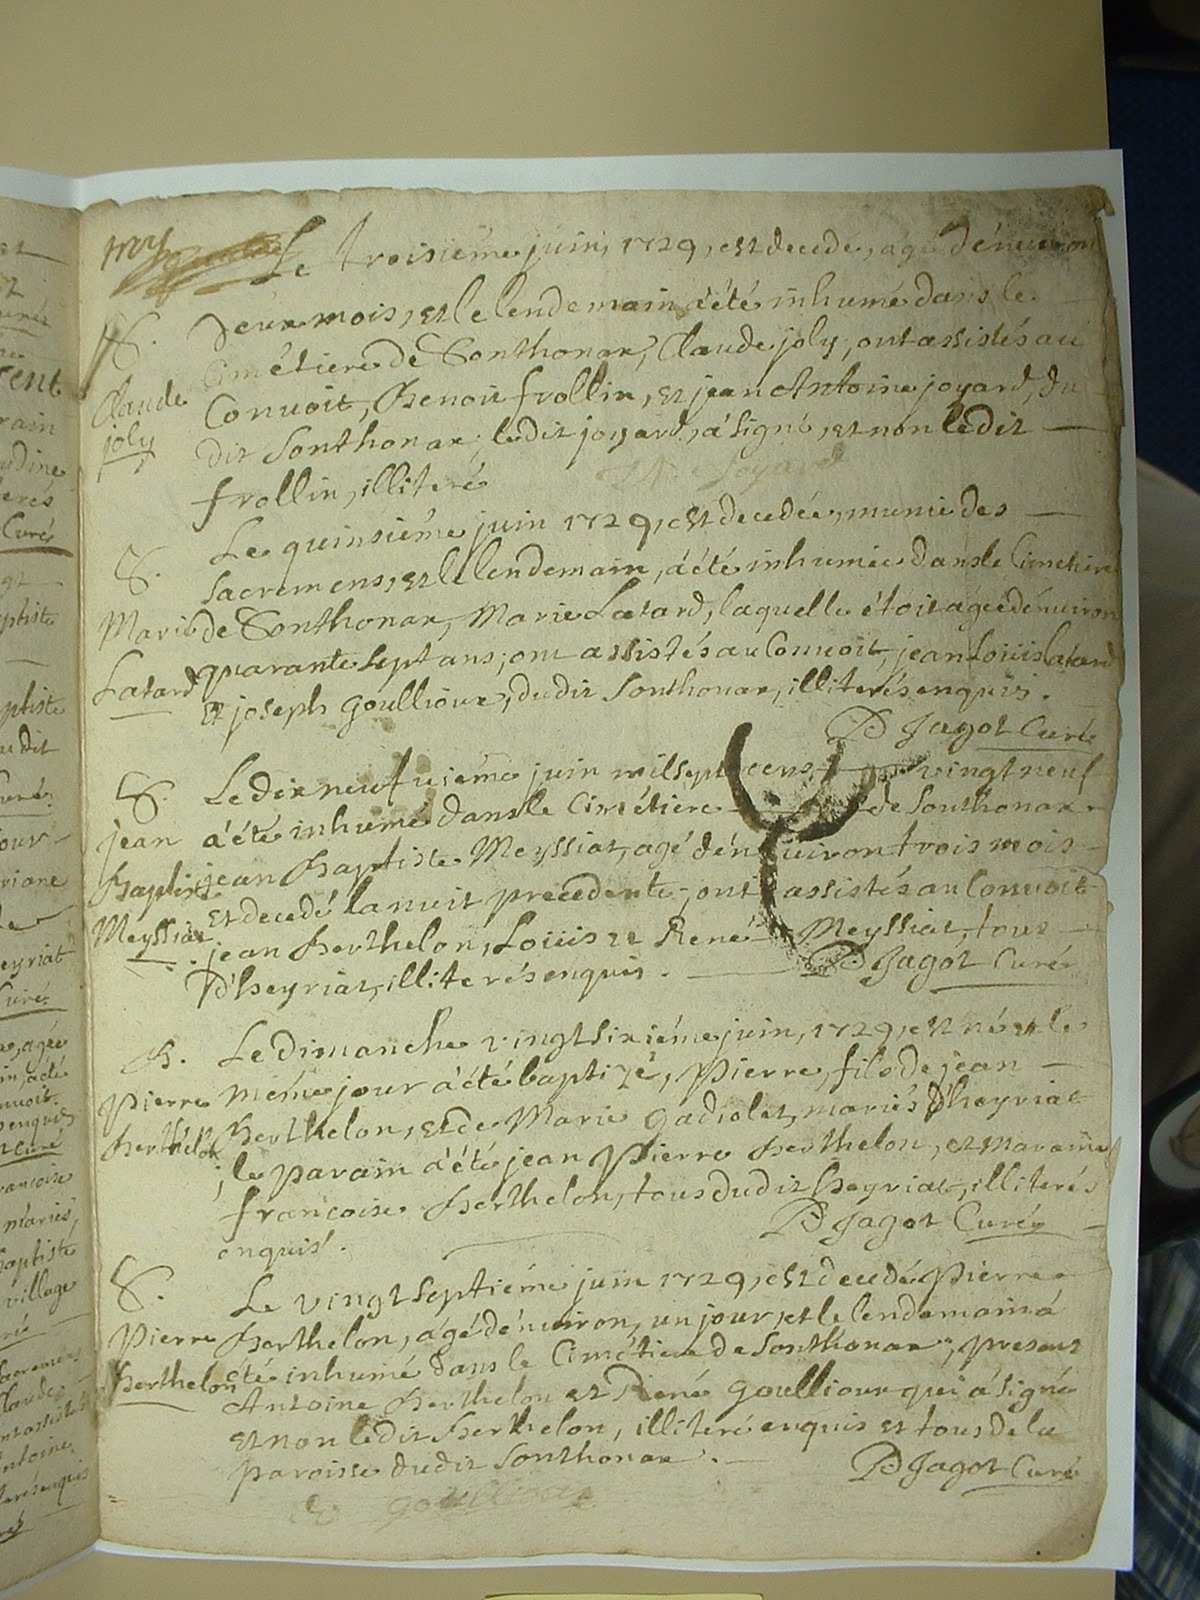 Le troisiéme juin, 1729, est decedé, agé dénuiron
S. deux mois, et le lendemain a été inhumé dans le
Claude cimétiere de Sonthonax, Claude joly, ont assistés au
joly Convoit, Benoit frollin, et jean Antoine joyard, du
dit Sonthonax, ledit joyard, a signé, et non ledit
frollin, illiteré
Joyard
Le quinsiéme juin 1729, est decedée, munie des
S. Sacremens, et le lendemain, a été inhumée dans le Cimetiere
Marie de Sonthonax, Marie Latard, laquelle étoit agée dénuiron
Latard quarante sept ans; ont assistés au Convoit, jean Loüis Latard
et joseph Goullioux, dudit Sonthonax, illiterés enquis.
Jagot Curé
S. Le dix neufuiéme juin mil sept cens vingt neuf
jean a été inhumé dans le Cimétiere de Sonthonax
Baptiste jean Baptiste Meyssiat, agé dénuiron trois mois
Meyssiat et decedé la nuit precedente; ont assistés au Convoit
jean Berthelon, Loüis et René Meyssiat, tous
d'heyriat, illiterés enquis.
Jagot Curé
B. Le dimanche vingt sixiéme juin, 1729, est né et le
Pierre méme jour a été baptizé, Pierre, fils de jean
Berthelon Berthelon, et de Marie Gadiolet, mariés d'heyriat
; le parain a été jean Pierre Berthelon, et maraine
francoise Berthelon, tous dudit heyriat, illiterés
enquis.
Jagot Curé
S. Le vingt septiéme juin 1729, est decedé Pierre
Pierre Berthelon, agé dénuiron, un jour, et le lendemain a
Berthelon été inhumé dans le Cimétiere de Sonthonax, present
Antoine Berthelon et René Goullioux qui a signé
et non ledit Berthelon, illiteré enquis et tous de la
paroisse dudit Sonthonax.
Jagot Curé
Goullioux